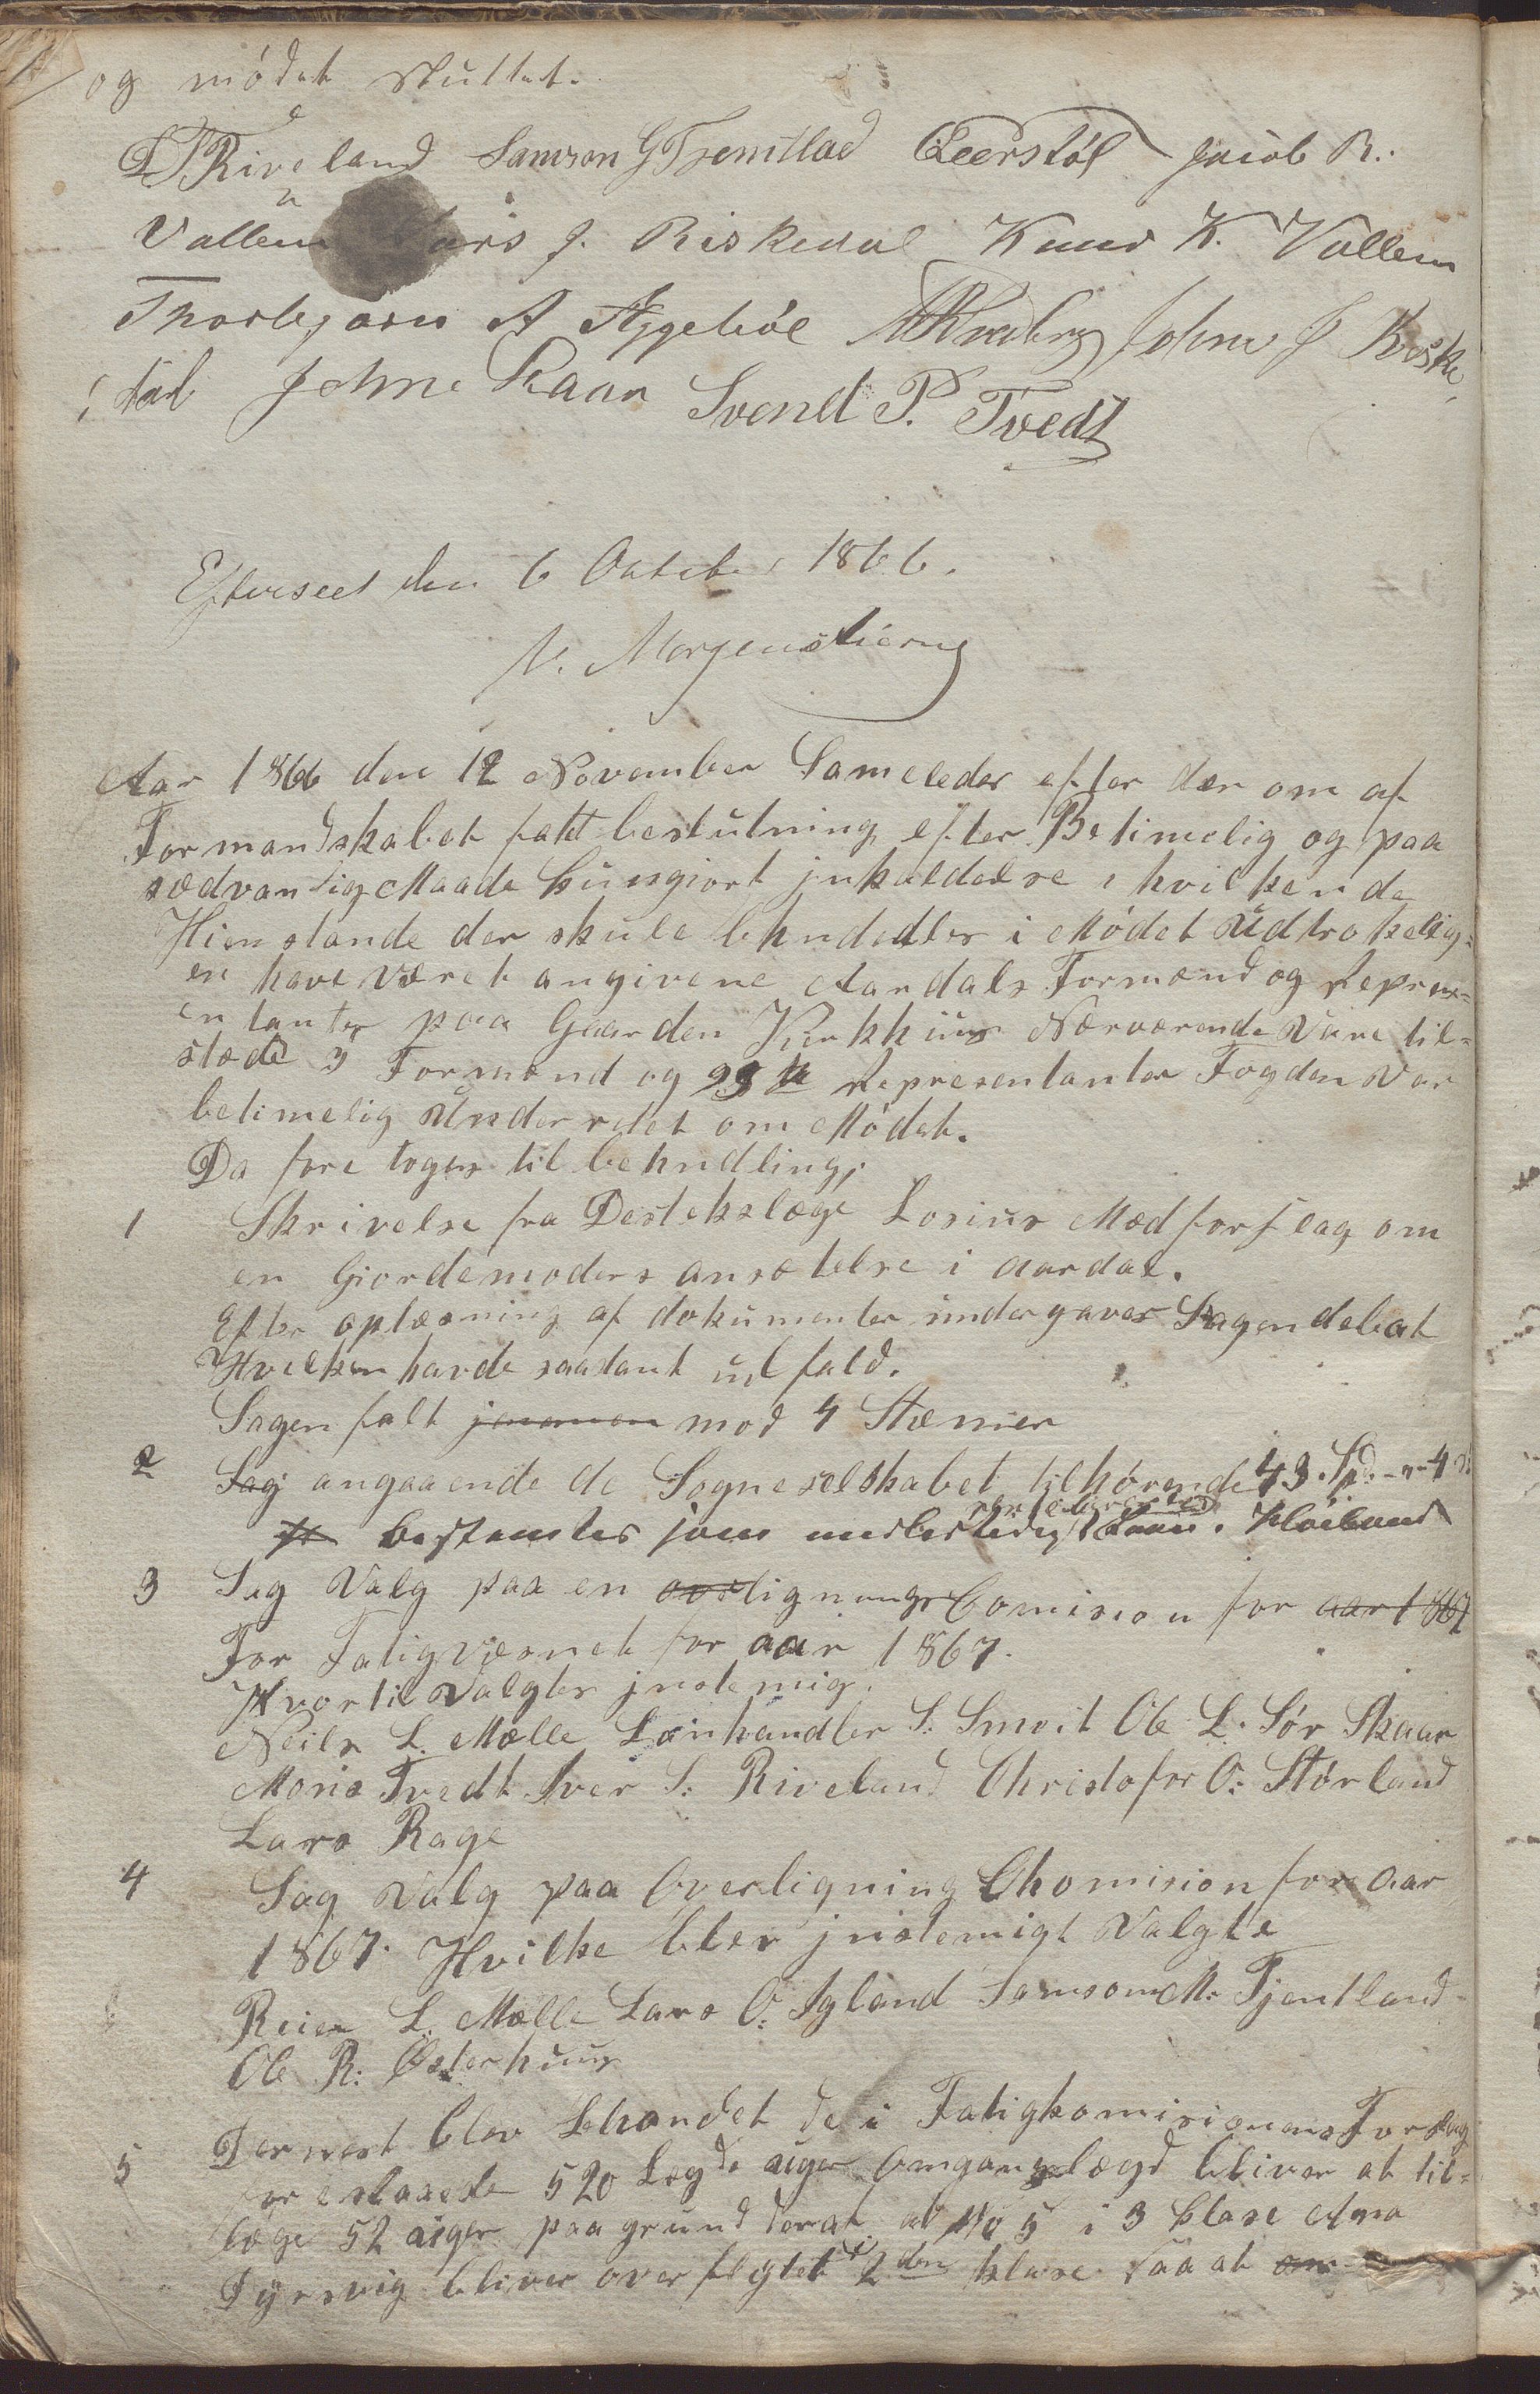 og módet sluttet.
L T Riveland Samson G Tjentlad Jacob R.
Vallem Lars J. Riskedal Knud K. Vallem
Thorbjørn A John J Riske
dal John Skaar Svend P. Tvedt
Efterseet den 6 October 1866.
V. Morgenstierne
Aar 1866 den 12 November Sameledes efter der om af
Formandskabet fatt beslutning efter Betimelig og paa
sædvanligMaade kungiort jnkaldelse i hvilken de
Gienstande der skule behndedles i Módet Udtrokelig=
en have været angivene Aardals Formænd og Repres=
entanter paa Gaarden Kirkhus Nærværende Vare til=
stede 3 Formænd og Representanter Fogden Var
betimelig Underrdet om Módet.
Da fore toges til behndling,
1 Skrivelse fra Destekslæge Losius Med forslag om
en Giordemoders ansættelse i aardal.
Efter oplæsning af dokumenter undergaves Sagen debat
Hvilken havde saadant udfald.
Sagen falt jenemen mod 4 Stemer
2 Sag angaaende de Sogneselskabet tilhørende 43 Spd - " - 4 s
bestemtes som Høiland
3 Sag Valg paa en overlignings Comision for aar 1867
For Fatigvæsnet for aar 1867.
Hvortil Valgtes jnstemig.
Neils L. Mælle Lanhandler S. Smoit Ole L. Sór Skaar
Mons Tvedt Iver S: Riveland Christofor O: Stórland
Lars Rage
4 Sag Valg paa Overligning Chomision for aar
1867. Hvilke blev jnstemigt Valgte
Reier L. Mælle Lars O: Igland Samson M. Tjentland
Ole R: Østerhuus
5 Dernest blev behandlet de i Fatigkomisionens Forslag
foreslaaede 520 Lægds uger Omgangslægd bliver at til=
læge 52 uger paa grund derat at No 5 i 3 Clase Ama
Tysvig bliver over flytet 2den klase saa at om